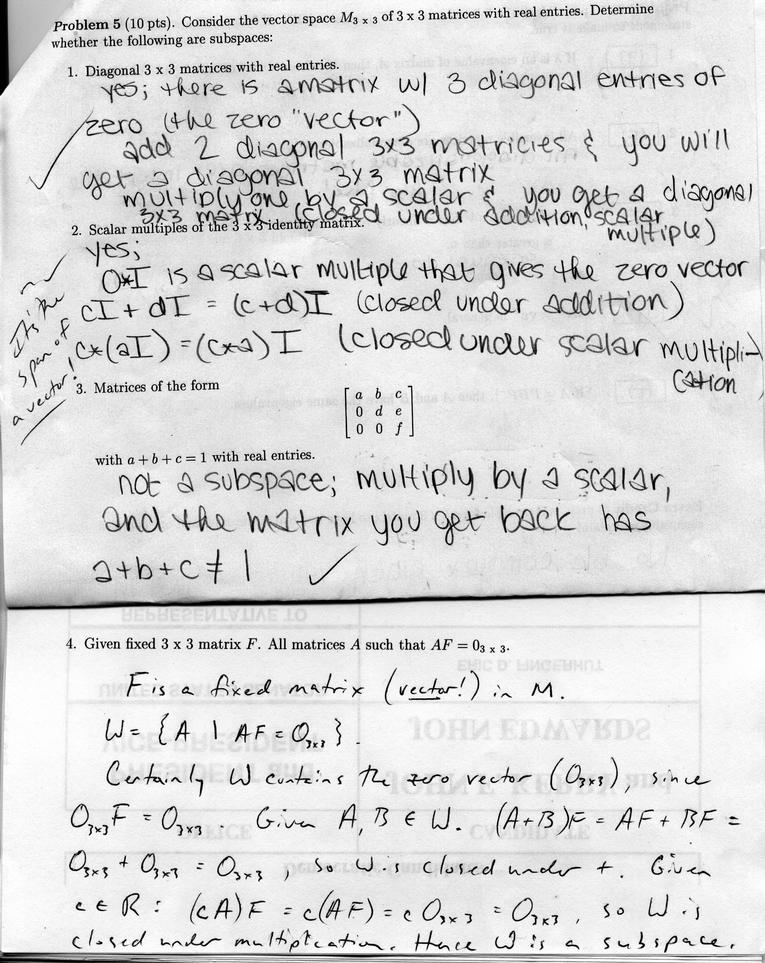 Problem 5 (10 pts). Consider the vector space M3 x 3 of 3 x 3 matrices with real entries. Determine
whether the following are subspaces:
1. Diagonal 3 x 3 matrices with real entries.
yes; there is a matrix w/ 3 diagonal entries of
zero (the zero "vector")
add 2 diagonal 3x3 matricies & you will
get a diagonal 3x3 matrix
multiply one by a scalar & you get a diagonal
3x3 matrix (closed under addition, scalar
multiple)
2. Scalar multiples of the 3 x 3 identity matrix.
yes;
0*I is a scalar multiple that gives the zero vector
cI + dI = (c+d)I (closed under addition)
c*(aI) = (c*a)I (closed under scalar multipli-
cation
It's the
span of
a vector!
3. Matrices of the form
a b c
0 d e
0 0 f
with a + b + c = 1 with real entries.
not a subspace; multiply by a scalar,
and the matrix you get back has
a+b+c ≠ 1
REPRESENTATIVE TO
4. Given fixed 3 x 3 matrix F. All matrices A such that AF = 03 x 3.
ERIC D. FINGERHUT
F is a fixed matrix (vector!) in M.
UNITED STATES SENATOR
W = {A | AF = O3x3}.
JOHN EDWARDS
VICE PRESIDENT
PRESIDENT and
Certainly W contains the zero vector (O3x3), since
O3x3F = O3x3. Given A, B ∈ W. (A+B)F = AF + BF =
OFFICE
CANDIDATE
O3x3 + O3x3 = O3x3, so W is closed under +. Given
c ∈ R: (cA)F = c(AF) = c O3x3 = O3x3, so W is
closed under multiplication. Hence W is a subspace.